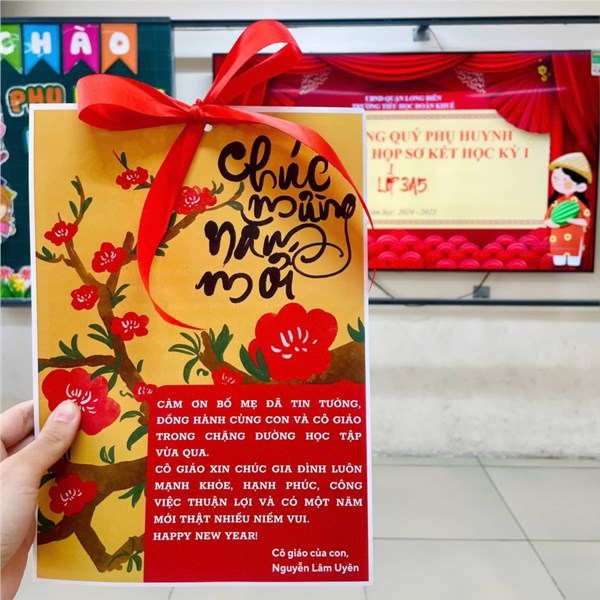 CHÀO
PHỤ
UBND QUẬN LONG BIÊN
TRƯỜNG TIỂU HỌC ĐOÀN KHUÊ
NG QUÝ PHỤ HUYNH
HỌP SƠ KẾT HỌC KỲ I
LỚP 3A5
Năm học: 2024 - 2025
chúc
mừng
năm
mới
CẢM ƠN BỐ MẸ ĐÃ TIN TƯỞNG,
ĐỒNG HÀNH CÙNG CON VÀ CÔ GIÁO
TRONG CHẶNG ĐƯỜNG HỌC TẬP
VỪA QUA.
CÔ GIÁO XIN CHÚC GIA ĐÌNH LUÔN
MẠNH KHỎE, HẠNH PHÚC, CÔNG
VIỆC THUẬN LỢI VÀ CÓ MỘT NĂM
MỚI THẬT NHIỀU NIỀM VUI.
HAPPY NEW YEAR!
Cô giáo của con,
Nguyễn Lâm Uyên